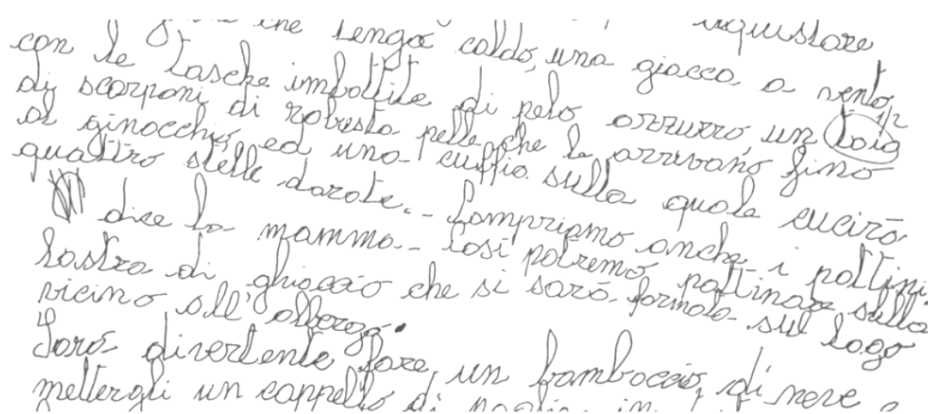 che tengoe caldo, una giacca a vento,
con le tasche imbottite di pelo azzurro, un paio
di scarponi di robusta pelle che le arrivano fino
al ginocchio, ed una cuffia sulla quale cucirò
quattro stelle dorate. - Compriamo anche i pattini
dice la mamma - così potremo pattinare sulla
lastra di ghiaccio che si sarà formata sul lago
vicino all'albergo.
"Sarà divertente fare un bamboccio, di neve e
mettergli un cappello di paglia in